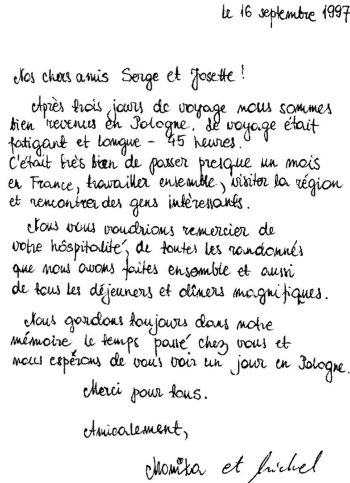 le 16 septembre 1997
Nos chers amis Serge et Josette !
Après trois jours de voyage nous sommes
bien revenus en Pologne. Le voyage était
fatigant et longue - 45 heures.
C'était très bien de passer presque un mois
en France, travailler ensemble, visiter la région
et rencontrer des gens intéressants.
Nous vous voudrions remercier de
votre hôspitalité, de toutes les randonnés
que nous avons faites ensemble et aussi
de tous les déjeuners et dîners magnifiques.
Nous gardons toujours dans notre
mémoire le temps passé chez vous et
nous espérons de vous voir un jour en Pologne.
Merci pour tous.
Amicalement,
Monika et Michel